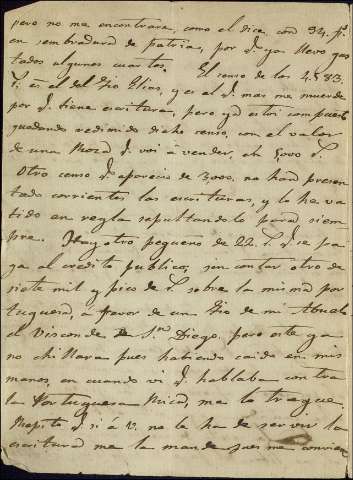 pero no me encontrara, como el dice, con 34. p.s
en sembradura de patrias, por q.e ya llevo gas
tados algunos cuartos. El censo de los 4.583.
r.s es el del Tio Elias, y es el q.e mas me muerde
por q.e tiene escritura, pero ya estoi compuesto
quedando redimido dicho censo, con el valor
de una Roza q.e voi á vender, en 5,000 r.s
Otro censo q.e aparecia de 3,000. no han presen
tado corrientes las escrituras, y lo he va
tido en regla sepultandolo para siem
pre. Hay otro pequeño de 22. r.s q.e se pa
ga al credito publico, sin contar otro de
siete mil y pico de r.s sobre la misma por
tuguesa, á favor de un Tio de mi Abuelo
el Visconde de S.n Diego. pero este ya
no chillara pues habiendo caido en mis
manos, en cuando vi q.e hablaba contra
la Portuguesa me la tragué.
Repito q.e si á V. no le ha de servir la
escritura me la mande pues me convien